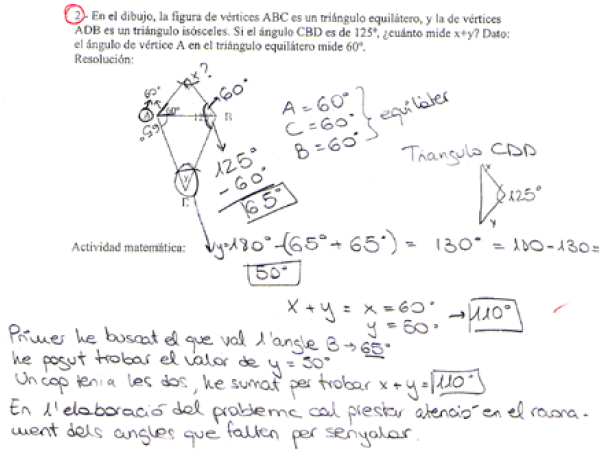 2.- En el dibujo, la figura de vértices ABC es un triángulo equilátero, y la de vértices
ADB es un triángulo isósceles. Si el ángulo CBD es de 125°, ¿cuánto mide x+y? Dato:
el ángulo de vértice A en el triángulo equilátero mide 60°.
Resolución:
x?
60°
60°
A
60°
B
65°
y
A = 60°
C = 60°
B = 60°
equilàter
125°
- 60°
65°
Triangulo CDD
x
y
125°
Actividad matemática:
y=180°-(65°+65°) = 130° = 180-130=
50°
x + y = x = 60°
y = 50°
→ 110°
Primer he buscat el que val l'angle B → 65°
he pogut trobar el valor de y = 50°
Un cop tenia les dos, he sumat per trobar x + y = 110°
En l'elaboració del problema cal prestar atenció en el raona-
ment dels angles que falten per senyalar.